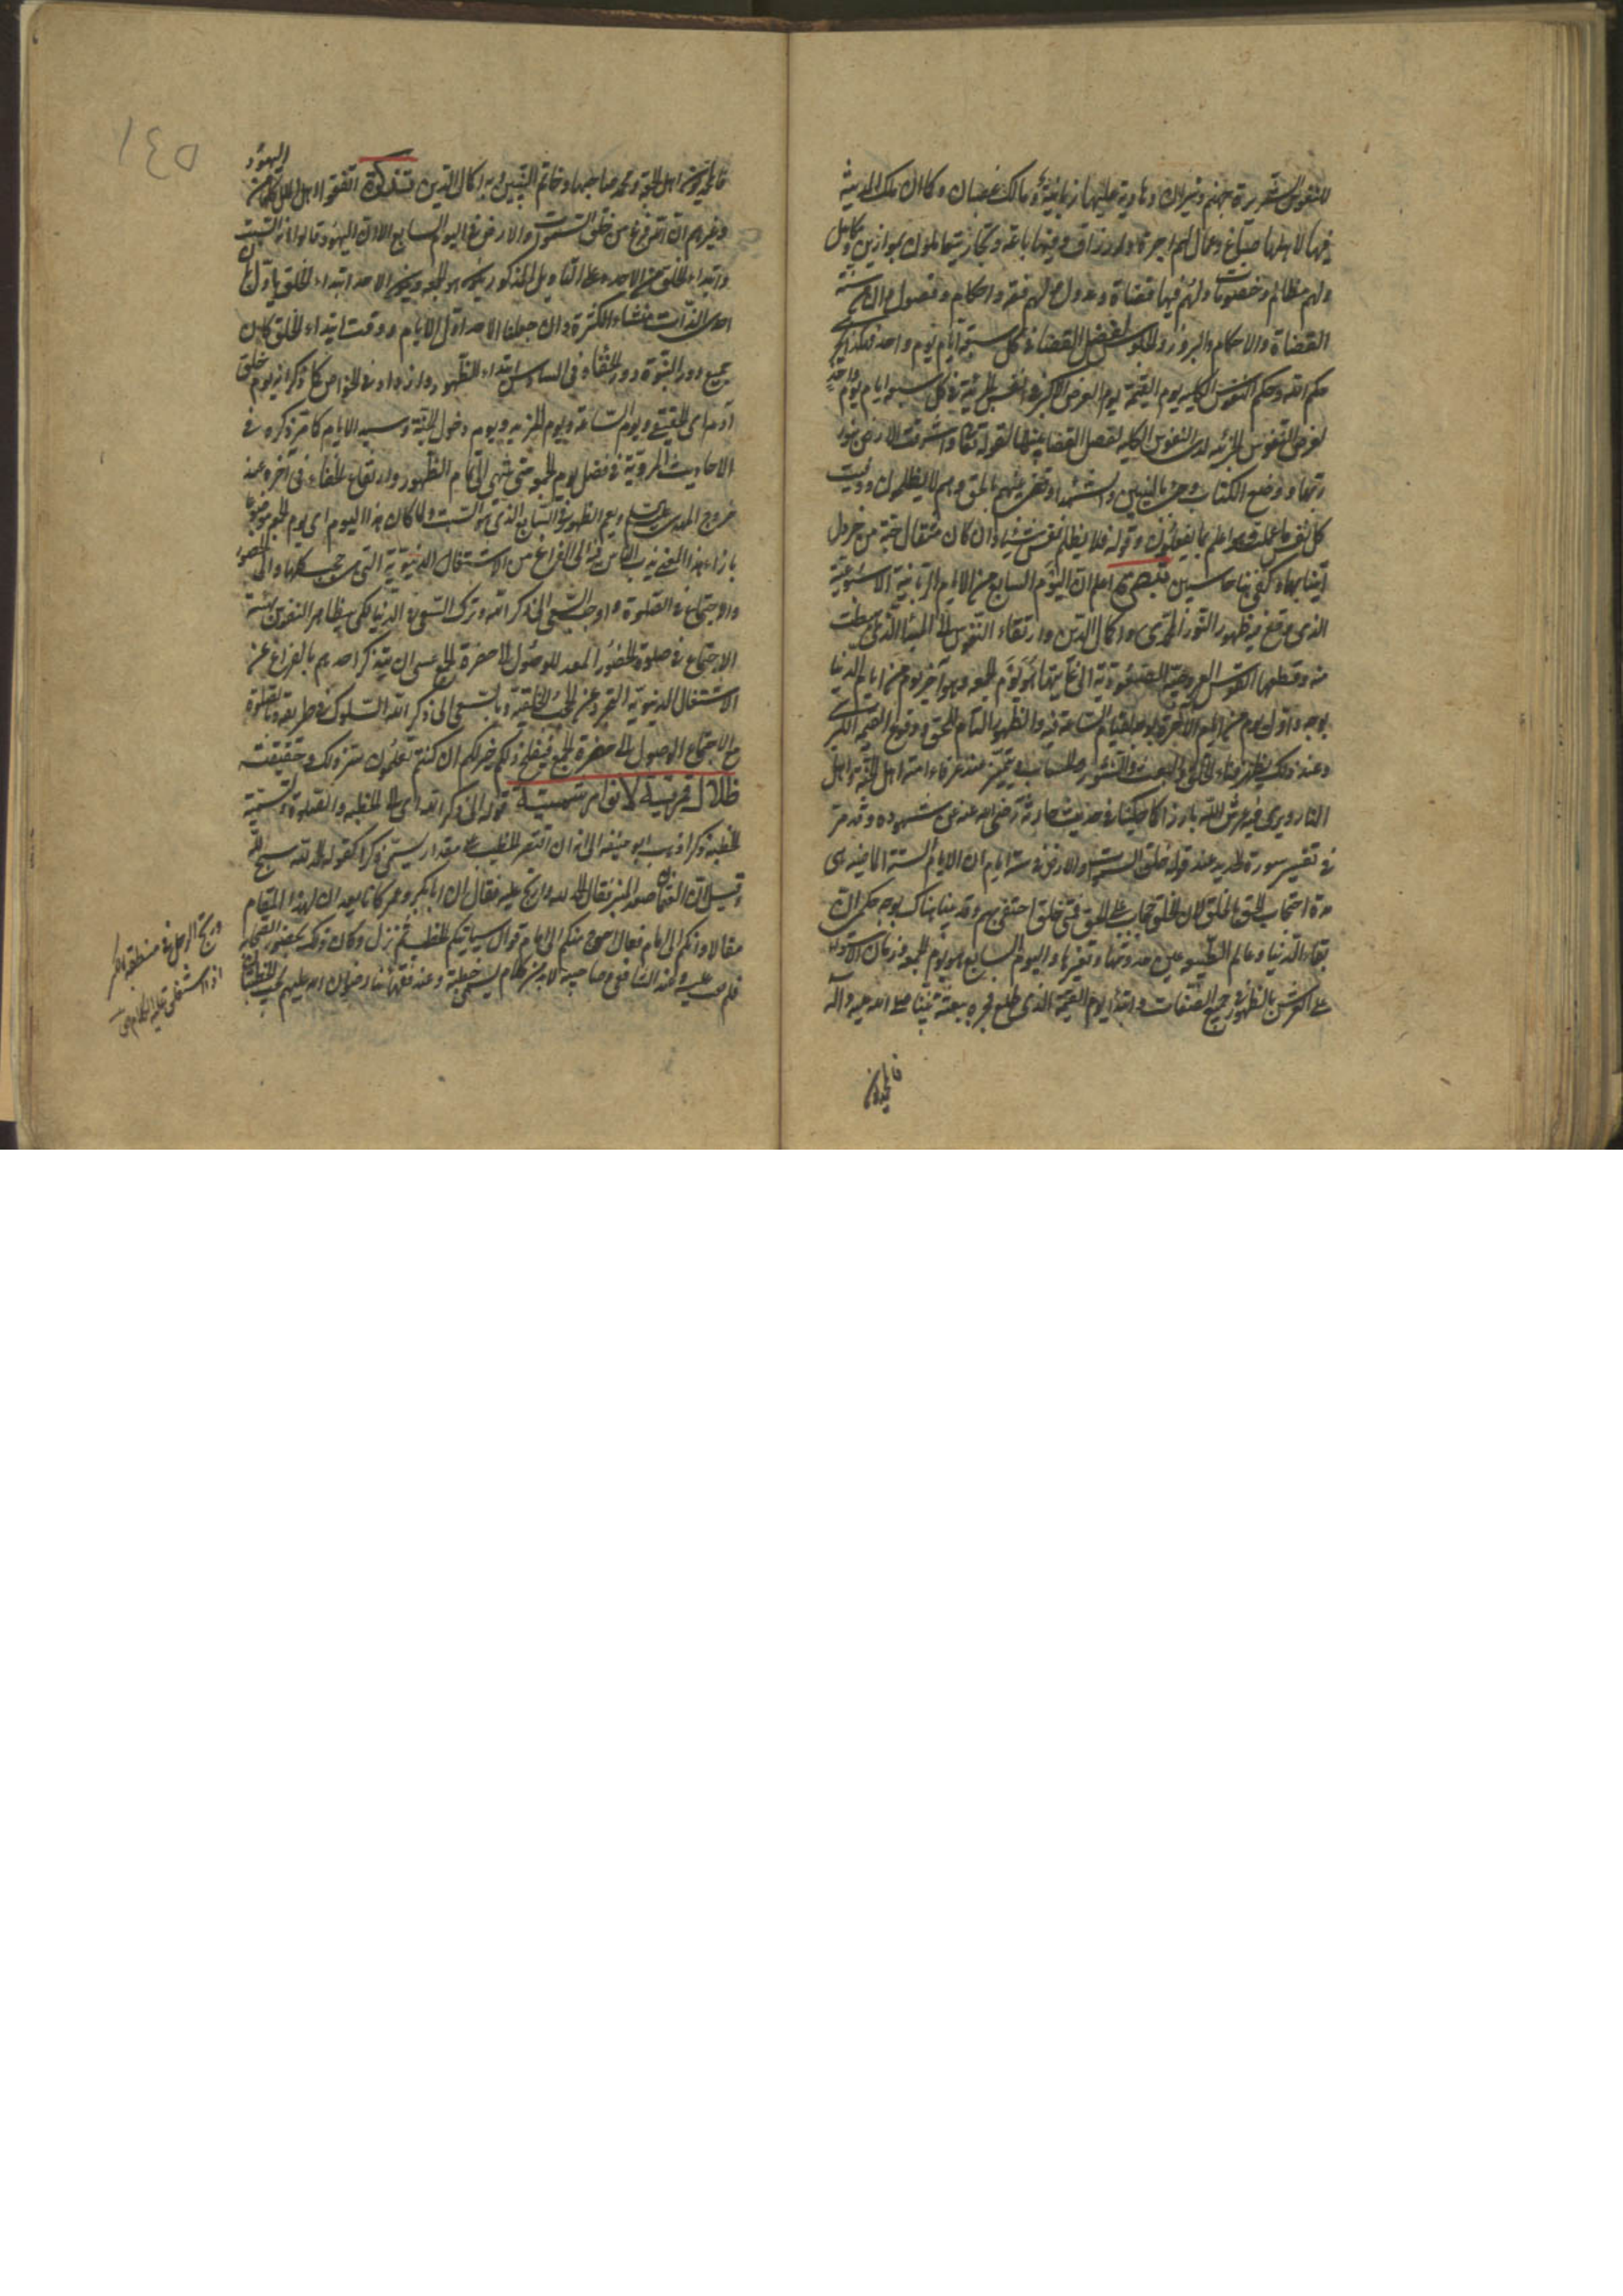 للنفوس الشريرة جهنم ونيران وهاوية عليها زبانية ومالك غضبان وكما ان تلك المدينة
فيها لاهلها صناع وعمال لهم اجرة وارزاق وفيها باعة وتجار يتعاملون بموازين ومكاييل
ولهم مظالم وخصومات ولهم فيها قضاة وعدول ولهم فقه واحكام وفصول وان من سنة
القضاة والاحكام والبروز والجلوس لفصل القضاء في كل سبعة ايام يوم واحد فهكذا يجرى
حكم الله وحكم النفوس الكلية يوم القيمة يوم العرض الاكبر في النفس الجزئية في كل سبعة ايام يوم واحد
لعرض النفوس الجزئية لدى النفوس الكلية لفصل القضاء بينها لقوله تعالى واشرقت الارض بنور
ربها ووضع الكتاب وجئ بالنبيين والشهداء وقضى بينهم بالحق وهم لا يظلمون ووفيت
كل نفس ما عملت وهو اعلم بما يفعلون وقوله فلا تظلم نفس شيئا وان كان مثقال حبة من خردل
اتينا بها وكفى بنا حاسبين تبصرة اعلم ان اليوم السابع من الايام الربانية الاسبوعية
الذي وقع فيه ظهور النور المحمدى واكمال الدين وارتقاء النفوس الى المبدأ الذي هبطت
منه وقطعها القوس العروجية الصعودية الى غايتها هو يوم الجمعة وهو آخر يوم من ايام الدنيا
بوجه واول يوم من ايام الآخرة بوجه لقيام الساعة فيه والظهور التام للحق ووقوع القيمة الكبرى
وعند ذلك يظهر فناء الخلق والبعث والنشور والحساب ويتميز عند عرفاء امته اهل الجنة واهل
النار ويرى فيه عرش الله بارزا كما حكينا في حديث حارثة رضى الله عنه من شهوده وقد مر
في تفسير سورة الحديد عند قوله خلق السموات والارض في ستة ايام ان الايام الستة الماضية هى
مدة احتجاب الحق بالخلق لان الخلق حجاب على الحق فمتى خلق اختفى بهم وقد بينا هناك بوجه حكمى ان
بقاء الدنيا وعالم الطبيعة عين حدوثها وتغيرها واليوم السابع هو يوم الجمعة وزمان الاستواء
على العرش بالظهور في جميع الصفات وابتداء يوم القيمة الذي طلع فجره ببعثة نبينا صلى الله عليه وآله
فالمحمديون
١٤٥
فالمحمديون اهل الجمعة ومحمد صاحبها وخاتم النبيين وبه اكمال الدين تذكرة اتفق اهل الملل كلهم من اليهود
وغيرهم ان الله فرغ من خلق السموات والارض في اليوم السابع الا ان اليهود قالوا انه السبت
وابتداء الخلق من الاحد وعلى التأويل المذكور يكون هو الجمعة ويكون الاحد ابتداء الخلق
احدى الذات منشاء الكثرة وان جعلنا الاحد اول الايام ووقت ابتداء الخلق كان
جميع دور النبوة دور الخفاء في السادس ابتداء الظهور وازداد في الخواص كما ذكر انه يوم خلق
آدم اى الحقيقى ويوم الساعة ويوم المزيد ويوم دخول الجنة وسيد الايام كما مر ذكره في
الاحاديث المروية في فضل يوم الجمعة حتى ينتهى الى تمام الظهور وارتفاع الخفاء في آخره عند
خروج المهدى عليه السلم ويعم الظهور في السابع الذي هو السبت ولما كان هذا اليوم اى يوم الجمعة موضوعا
بازاء هذا المعنى ندب الناس فيه الى الفراغ من الاشتغال الدنيوية التي هى حجب كلها والى الحضور
والاجتماع في الصلوة واوجب السعى الى ذكر الله وترك السعى في الدنيا لكى يتظاهر النفوس بهيئة
الاجتماع في صلوة الحضور المعد للوصول الى حضرة الجمع عسى ان يتذكر احدهم بالفراغ عن
الاشتغال الدنيوية التجرد عن الحجب الخلقية وبالسعى الى ذكر الله السلوك في طريقه وبالصلوة
مع الاجتماع الوصول الى حضرة الجمع فيفلح ذلكم خير لكم ان كنتم تعلمون سر ذلك وحقيقته
ظلال فرعية لانوار شمسية قوله الى ذكر الله اى الى الخطبة والصلوة ولتسمية
الخطبة ذكرا ذهب ابو حنيفة الى انه ان اقتصر الخطيب على مقدار يسمى ذكرا كقوله الحمد لله سبحان الله
وقيل ان عثمان صعد المنبر فقال الحمد لله وارتج عليه فقال ان ابا بكر وعمر كانا يعدان لهذا المقام
مقالا وانكم الى امام فعال احوج منكم الى امام قوال سيأتيكم الخطب ثم نزل وكان ذلك بحضور الصحابة
فلم يعب عليه وعند الشافعى وصاحبيه لا بد من كلام يسمى خطبة وعند فقهائنا رضوان الله عليهم يجب في الخطبة
ورتج الرجل في منطقه بالكسر
اذا استغلق عليه الكلام ص